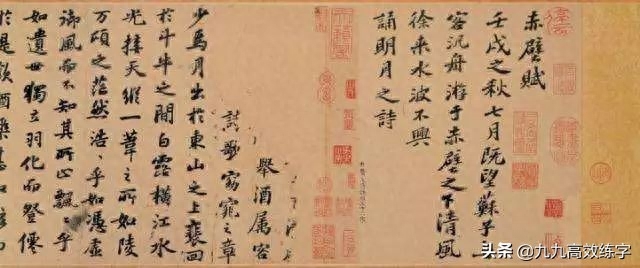 赤壁賦
壬戌之秋七月既望蘇子
客汎舟游于赤壁之下清風
徐来水波不興
誦明月之詩
舉酒属客
詩歌窈窕之章
少焉月出於東山之上裴回
於斗牛之間白露横江水
光接天縱一葦之所如陵
万頃之茫然浩〻乎如憑虚
御風而不知其所止飄〻乎
如遺世獨立羽化而登僊
於是飲酒樂甚
头条 @九九高效练字